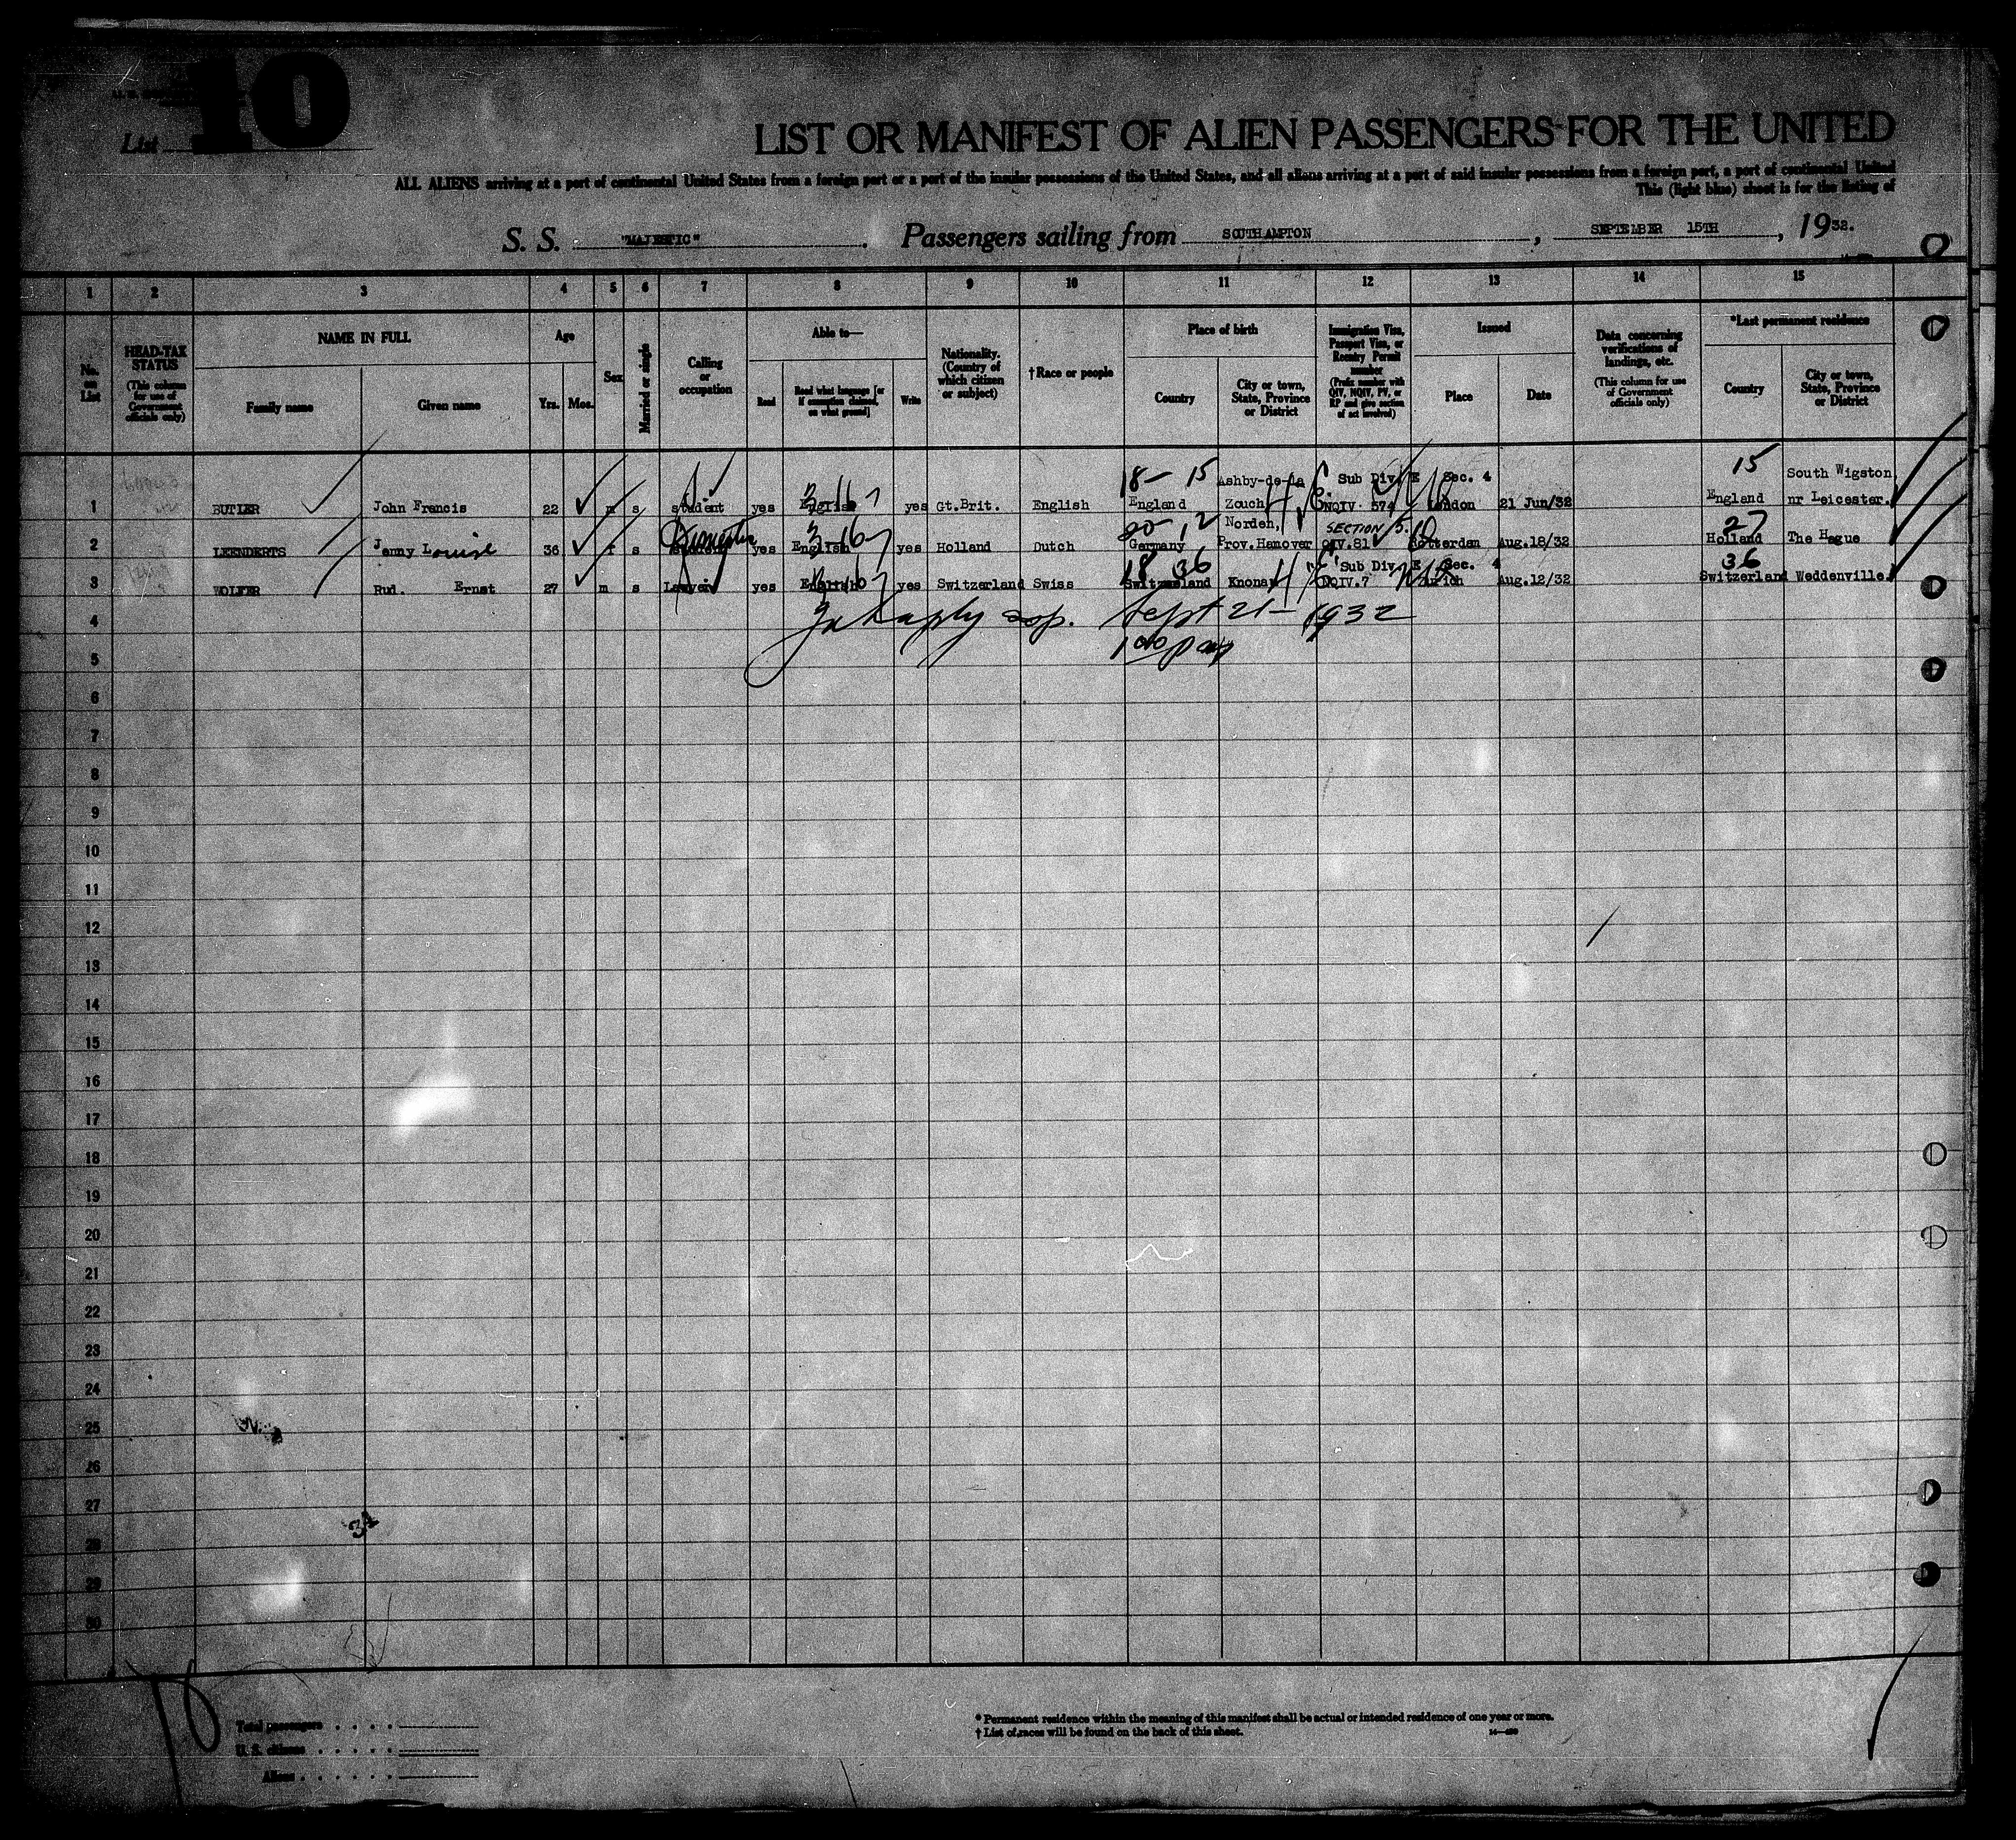 10
List
LIST OR MANIFEST OF ALIEN PASSENGERS FOR THE UNITED
ALL ALIENS arriving at a port of continental United States from a foreign port or a port of the insular possessions of the United States, and all aliens arriving at a port of said insular possessions from a foreign port, a port of continental United
This (light blue) sheet is for the listing of
S. S. "MAJESTIC" Passengers sailing from SOUTHAMPTON, SEPTEMBER 15TH, 1932.
1 2 3 4 5 6 7 8 9 10 11 12 13 14 15
No. on List
HEAD-TAX STATUS (This column for use of Government officials only)
NAME IN FULL
Family name Given name
Age
Yrs. Mos.
Sex
Married or single
Calling or occupation
Able to—
Read Read what language [or if exemption claimed, on what ground] Write
Nationality. (Country of which citizen or subject)
†Race or people
Place of birth
Country City or town, State, Province or District
Immigration Visa, Passport Visa, or Reentry Permit number (Prefix number with QIV, NQIV, PV, or RP and give section of act involved)
Issued
Place Date
Data concerning verifications of landings, etc. (This column for use of Government officials only)
*Last permanent residence
Country City or town, State, Province or District
18- 15 Ashby-de-la Sub Div E Sec. 4 15 South Wigston
1 BUTLER John Francis 22 m s student yes English yes Gt.Brit. English England Zouch NQIV 574 London 21 Jun/32 England nr Leicester.
3-16 Norden, SECTION 5. 27
2 LEENDERTS Jenny Louise 36 f s yes English yes Holland Dutch Germany Prov.Hanover QIV.81 Rotterdam Aug.18/32 Holland The Hague
18 36 Sub Div. E Sec. 4 36
3 WOLFER Rud. Ernst 27 m s Lawyer yes English yes Switzerland Swiss Switzerland Knonau NQIV.7 Zurich Aug.12/32 Switzerland Weddenville.
4 Sept 21- 1932
5
6
7
8
9
10
11
12
13
14
15
16
17
18
19
20
21
22
23
24
25
26
27
34
28
29
30
Total passengers
U. S. citizens
Aliens
* Permanent residence within the meaning of this manifest shall be actual or intended residence of one year or more.
† List of races will be found on the back of this sheet.